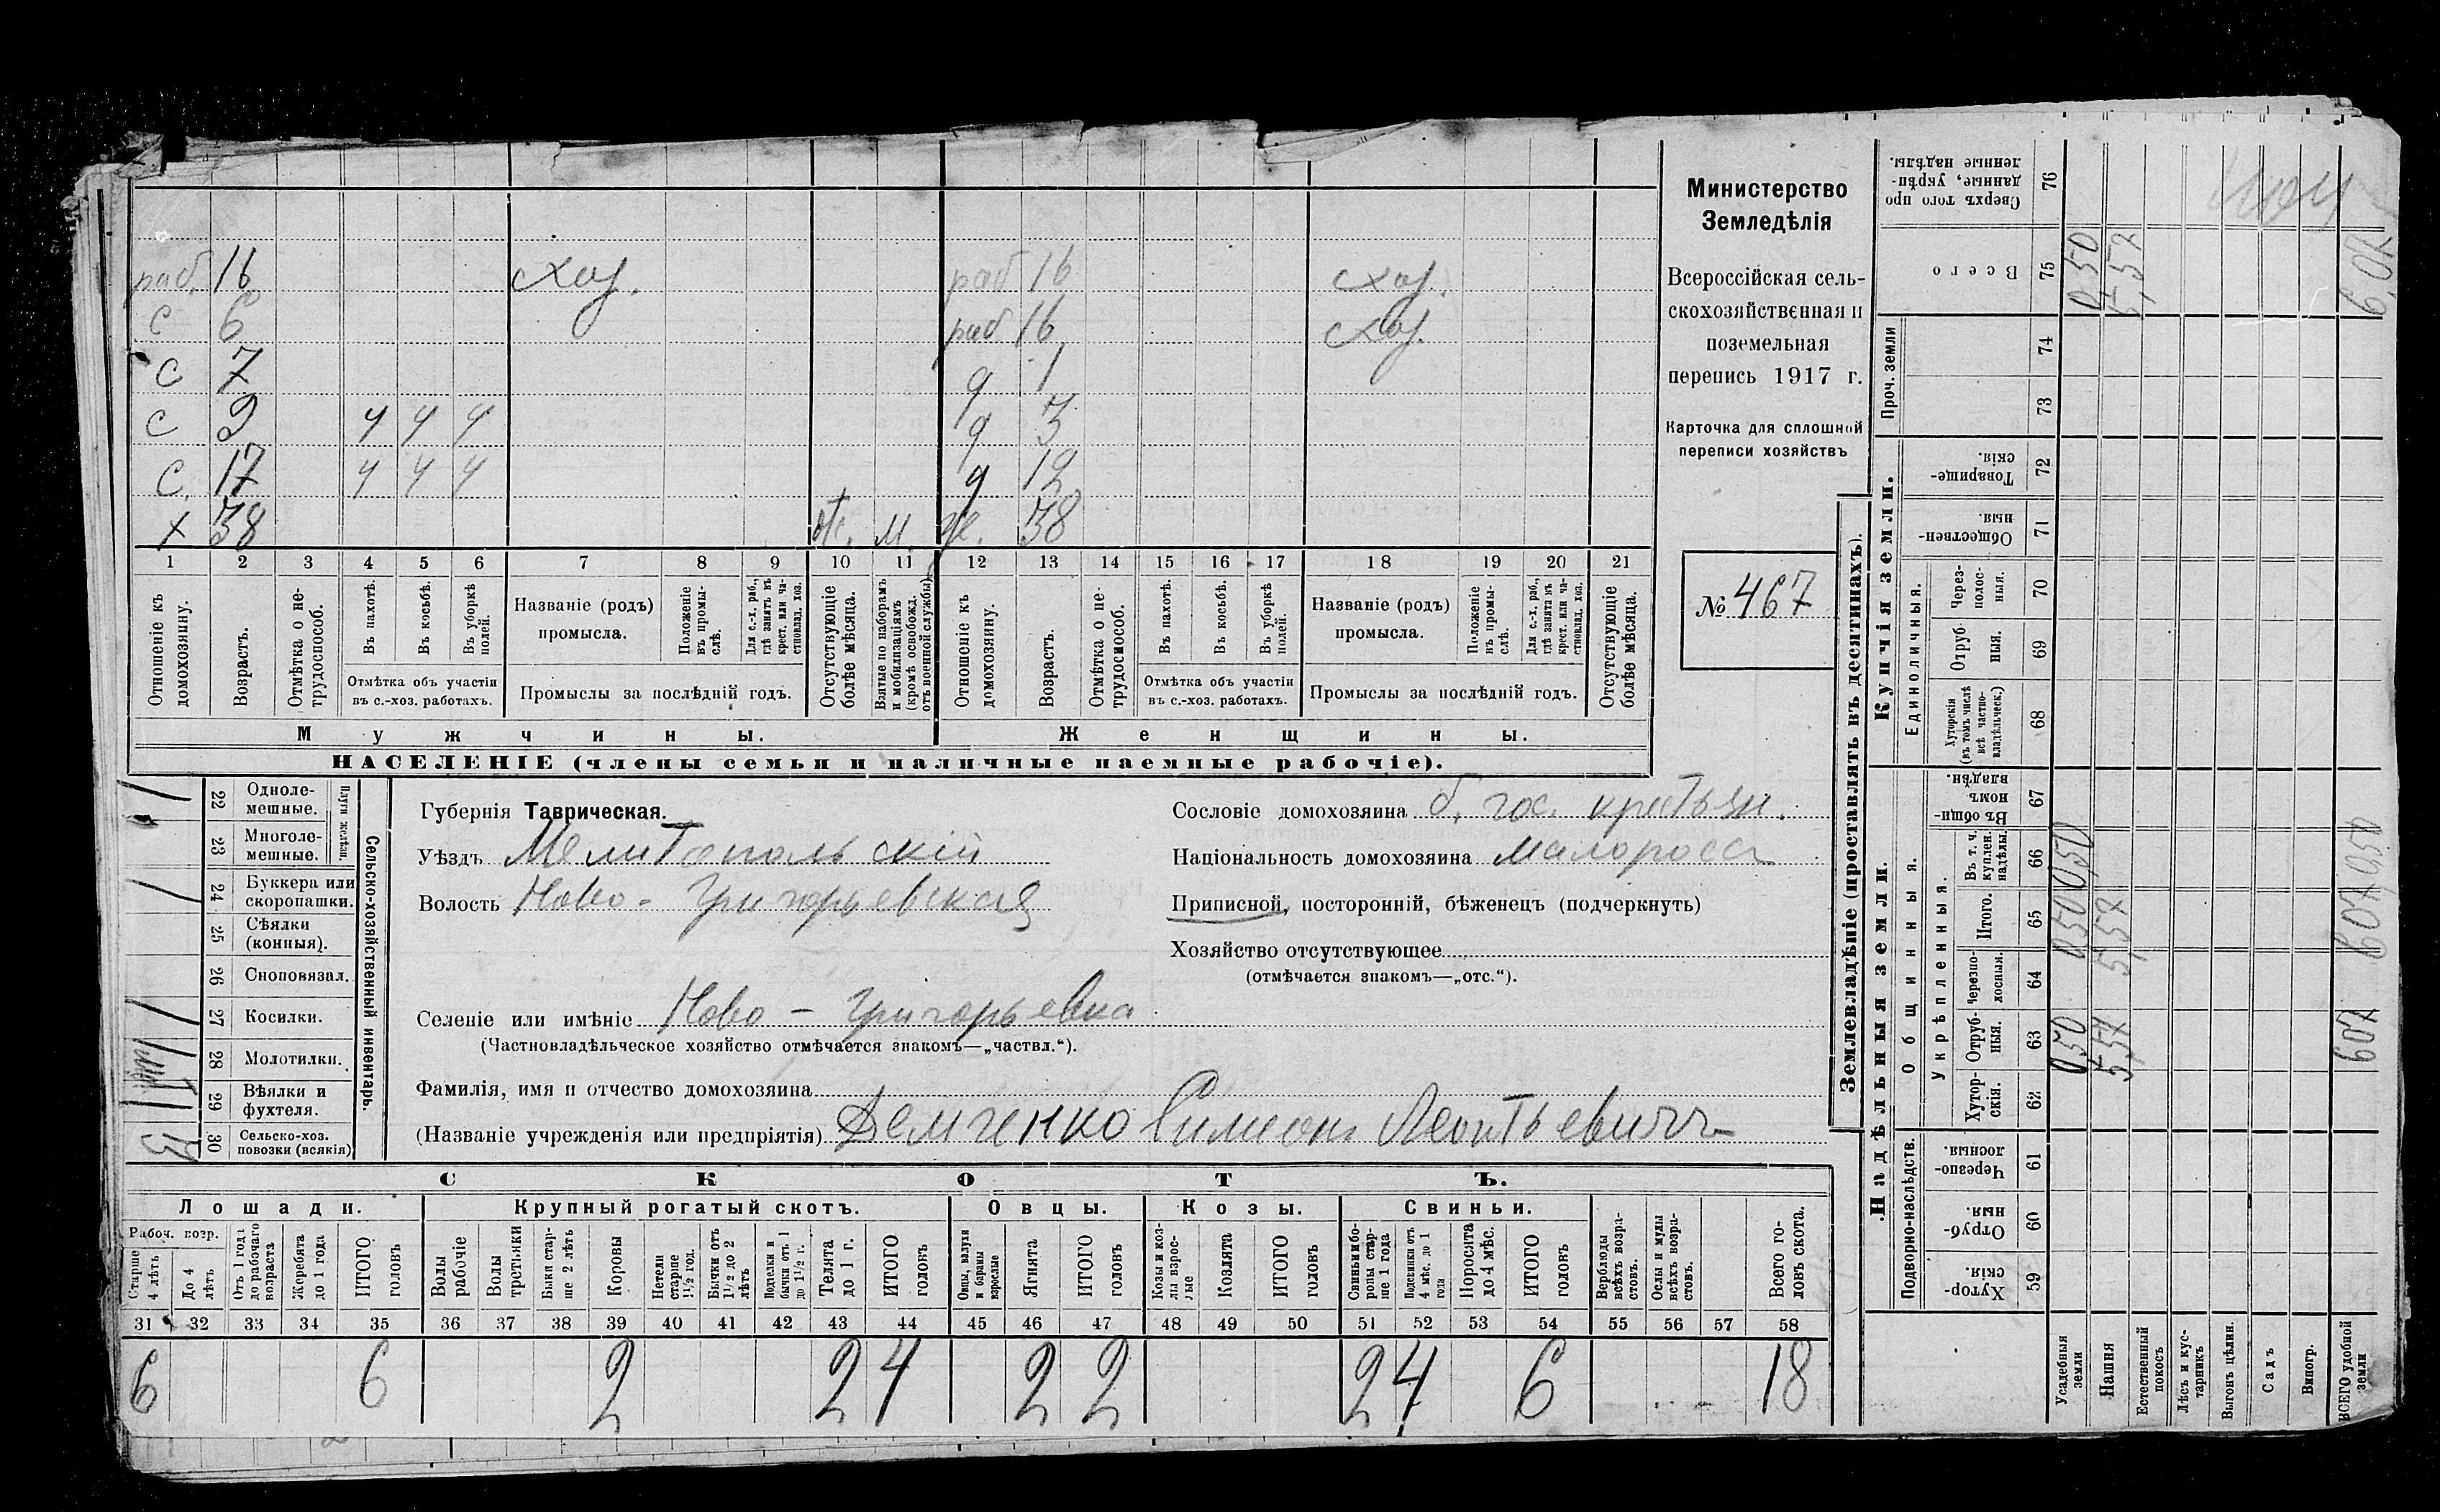 раб. 16 схоз. раб 16 схоз.
с 6 раб 16 схоз.
с 7 д 1
с 9 ч ч ч д 3
с. 17 ч ч ч д 12
х 38 от. м. ж. 38
1 2 3 4 5 6 7 8 9 10 11 12 13 14 15 16 17 18 19 20 21
Отношеніе къ домохозяину.
Возрастъ.
Отмѣтка о не-трудоспособ.
Въ пахотѣ.
Въ косьбѣ.
Въ уборкѣ полей.
Отмѣтка объ участіи
въ с.-хоз. работахъ.
Названіе (родъ)
промысла.
Положеніе въ промы-слѣ.
Для с.-х. раб., гдѣ занятъ въ крест. или ча-стновлад. хоз.
Промыслы за послѣдній годъ.
Отсутствующіе болѣе мѣсяца.
Взятые по наборамъ и мобилизаціямъ (кромѣ освобожд. отъ военной службы)
Отношеніе къ домохозяину.
Возрастъ.
Отмѣтка о не-трудоспособ.
Въ пахотѣ.
Въ косьбѣ.
Въ уборкѣ полей.
Отмѣтка объ участіи
въ с.-хоз. работахъ.
Названіе (родъ)
промысла.
Положеніе въ промы-слѣ.
Для с.-х. раб., гдѣ занята въ крест. или ча-стновлад. хоз.
Промыслы за послѣдній годъ.
Отсутствующіе болѣе мѣсяца.
Мужчины. Женщины.
НАСЕЛЕНІЕ (члены семьи и наличные наемные рабочіе).
Министерство
Земледѣлія
Всероссійская сель-
скохозяйственная и
поземельная
перепись 1917 г.
Карточка для сплошной
переписи хозяйствъ
№ 467
Сельско-хозяйственный инвентарь.
Плуги желѣзн.
22 Одноле-мешные. 1
23 Многоле-мешные.
24 Буккера или скоропашки. 1
25 Сѣялки (конныя).
26 Сноповязал.
27 Косилки. 1
28 Молотилки.
29 Вѣялки и фухтеля.
30 Сельско-хоз. повозки (всякія)
Губернія Таврическая.
Уѣздъ Мелитопольскій
Волость Ново-Григорьевская
Селеніе или имѣніе Ново-Григорьевка
(Частновладѣльческое хозяйство отмѣчается знакомъ—„частвл.“).
Фамилія, имя и отчество домохозяина
(Названіе учрежденія или предпріятія) Демченко Симеонъ Леонтьевичъ
Сословіе домохозяина б. гос. крестьян.
Національность домохозяина малороссъ
Приписной, посторонній, бѣженецъ (подчеркнуть)
Хозяйство отсутствующее
(отмѣчается знакомъ—„отс.“).
СКОТЪ.
Лошади. Крупный рогатый скотъ. Овцы. Козы. Свиньи.
Рабоч. возр.
Старше 4 лѣтъ
До 4 лѣтъ
Отъ 1 года до рабочаго возраста
Жеребята до 1 года
ИТОГО головъ
Волы рабочіе
Волы третьяки
Быки стар-ше 2 лѣтъ
Коровы
Нетели старше 1½ год.
Бычки отъ 1½ до 2 лѣтъ
Подтелки и бычки отъ 1 до 1½ г.
Телята до 1 г.
ИТОГО головъ
Овцы, валухи и бараны взрослые
Ягнята
ИТОГО головъ
Козы и коз-лы взрос-лые
Козлята
ИТОГО головъ
Свиньи и бо-ровы стар-ше 1 года
Подсвинки отъ 4 мѣс. до 1 года
Поросята до 4 мѣс.
ИТОГО головъ
Верблюды всѣхъ возра-стовъ.
Ослы и мулы всѣхъ возра-стовъ.
Всего го-ловъ скота.
31 32 33 34 35 36 37 38 39 40 41 42 43 44 45 46 47 48 49 50 51 52 53 54 55 56 57 58
6 6 2 2 4 2 2 2 4 6 18
Землевладѣніе (проставлять въ десятинахъ).
Надѣльныя земли.
Подворно-наслѣдств.
Хутор-скія. 59
Отруб-ныя 60
Черезпо-лосныя. 61
Общинныя.
Укрѣпленныя.
Хутор-скія. 62
Отруб-ныя. 63
Черезпо-лосныя. 64
Итого. 65
Въ т. ч. куплен. надѣлы. 66
Въ общи-номъ владѣн. 67
Купчія земли.
Единоличныя.
Хуторскія (въ томъ числѣ всѣ частно-владѣльческ.) 68
Отруб-ныя. 69
Через-полос-ныя. 70
Обществен-ныя. 71
Товарище-скія. 72
Проч. земли
73 74
Всего 75
Сверхъ того про-данные, укрѣп-ленные надѣлы. 76
Усадебныя земли 0,50 0,50 0,50 0,50
Пашня 5,57 5,57 5,57
Естественный покосъ
Лѣсъ и кус-тарникъ
Выгонъ цѣлин.
Садъ
Виногр.
ВСЕГО удобной земли 6,07 6,07 0,50 6,07